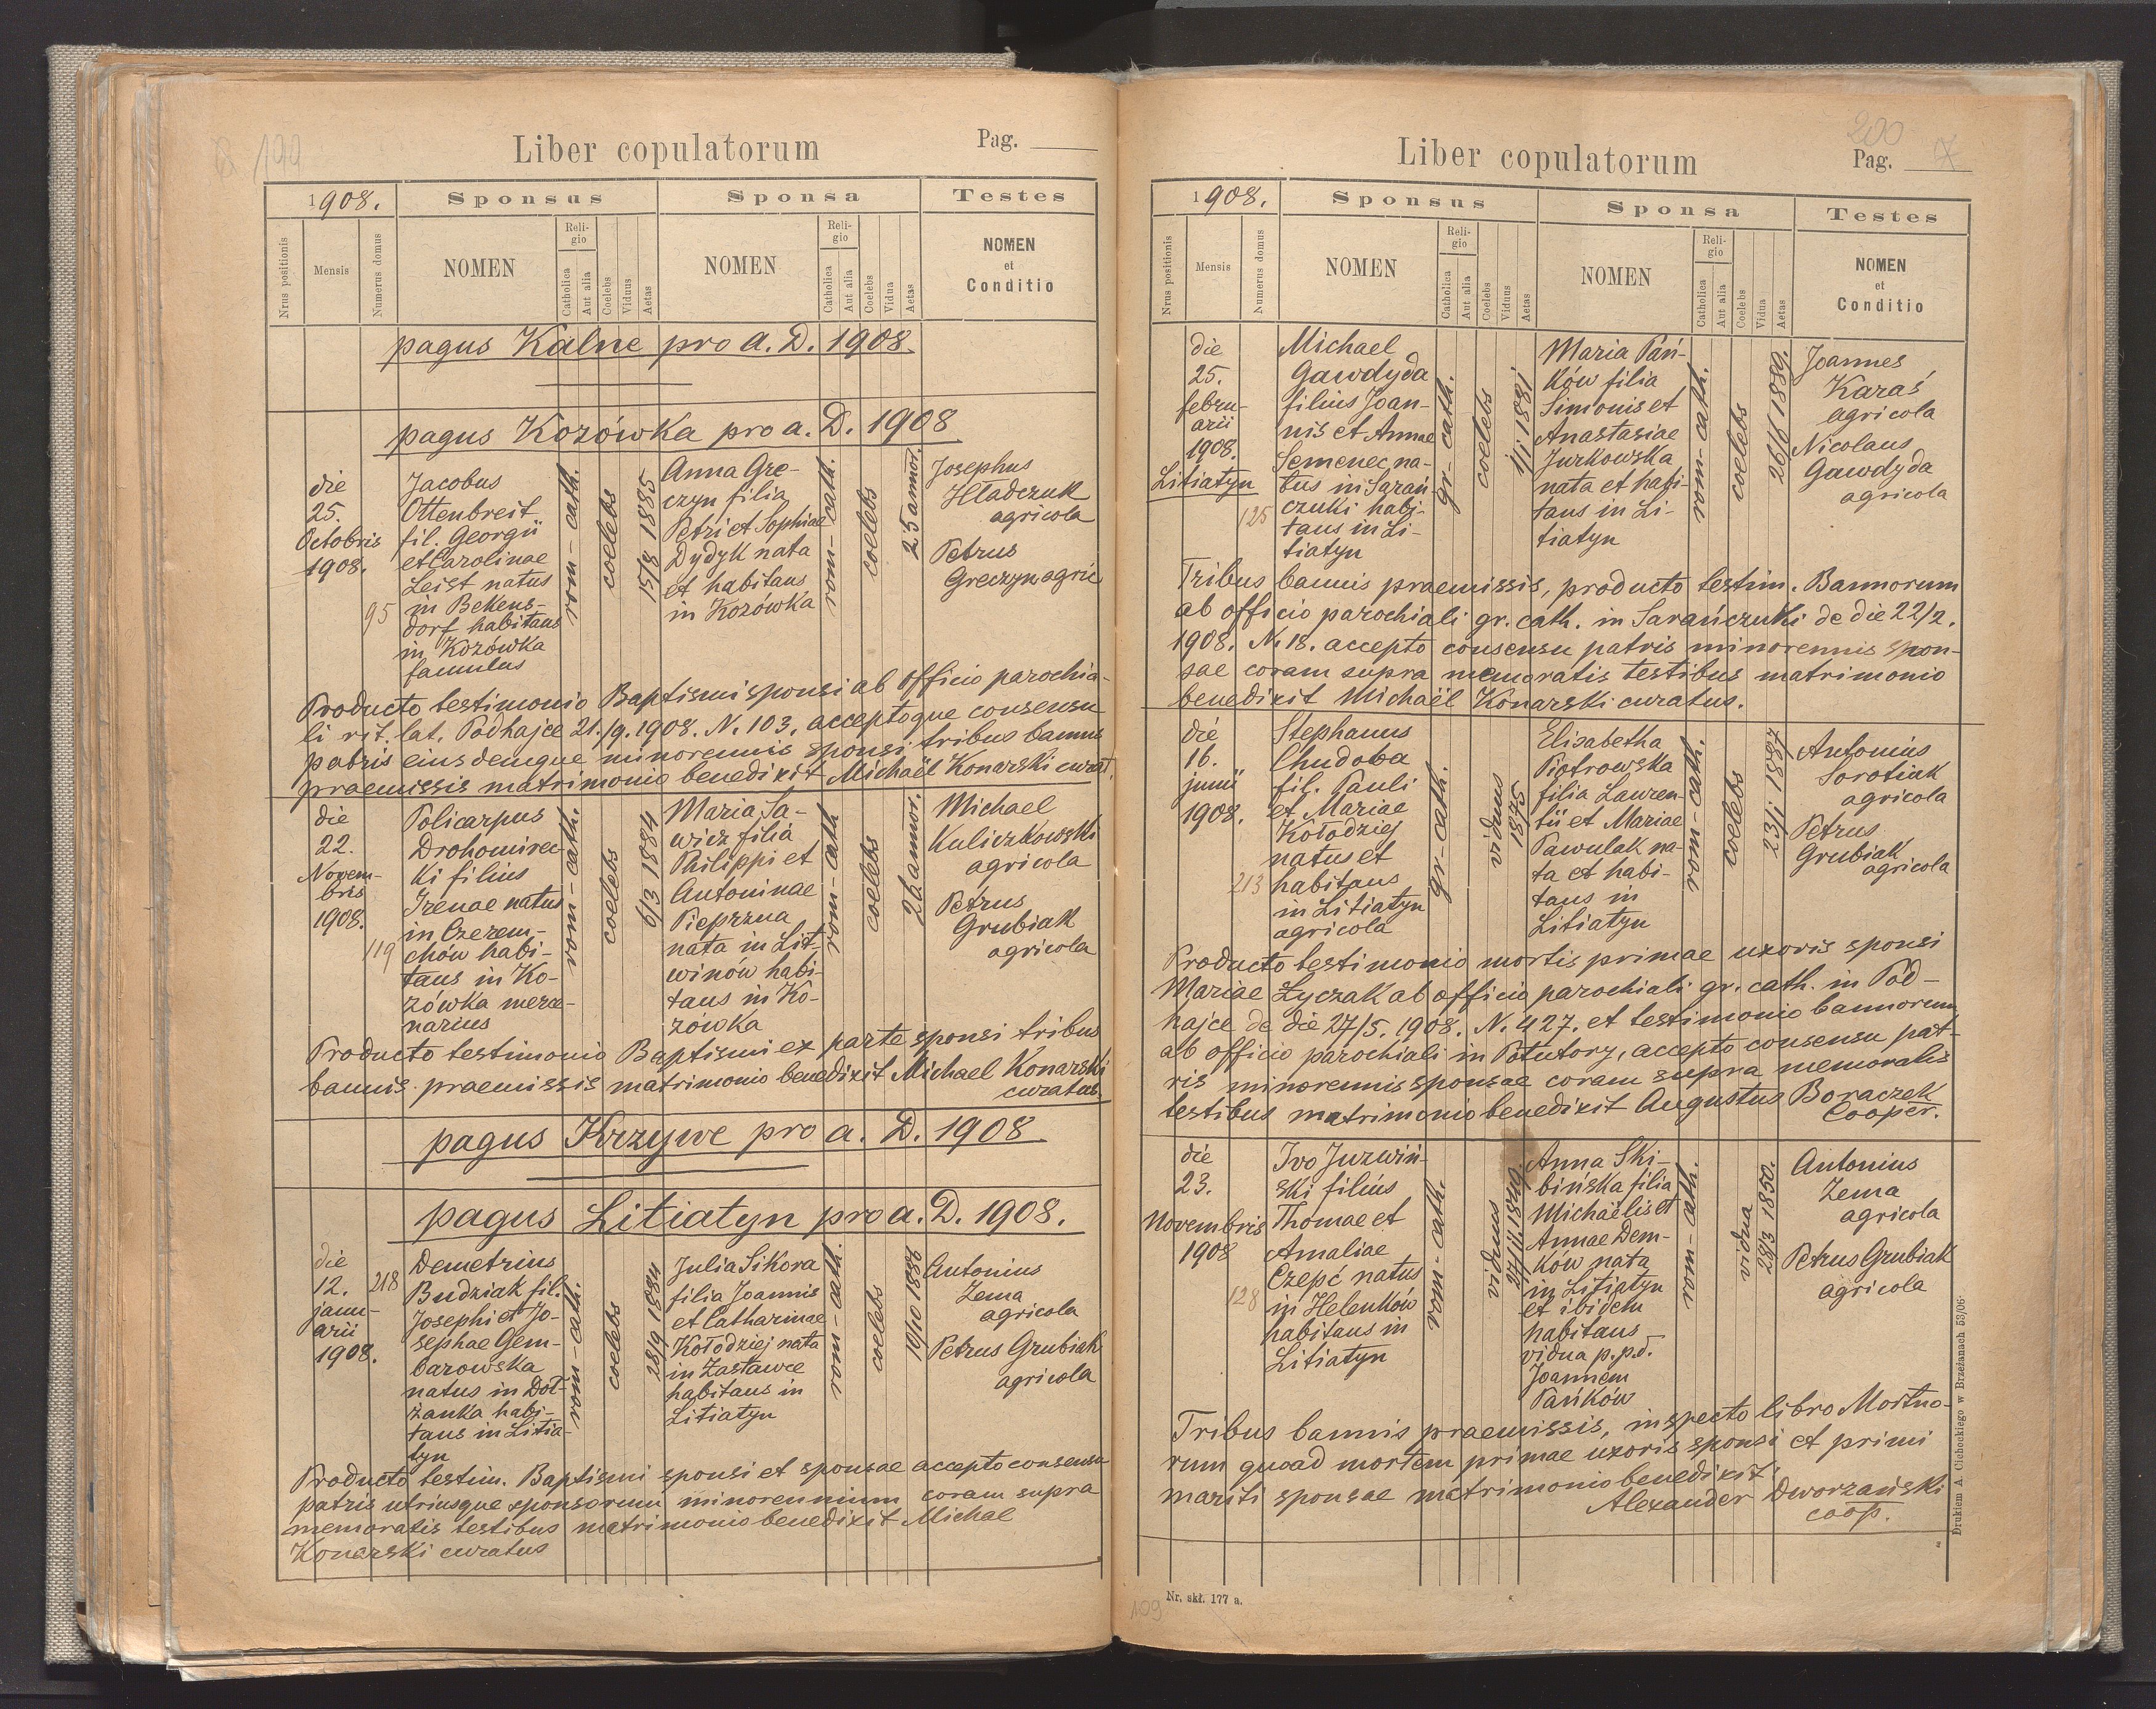 199
Liber copulatorum
Pag.
1908.
Sponsus
Sponsa
Testes
Nrus positionis
Mensis
Numerus domus
NOMEN
Religio
Catholica
Aut alia
Coelebs
Viduus
Aetas
NOMEN
Religio
Catholica
Aut alia
Coelebs
Vidua
Aetas
NOMEN
et
Conditio
pagus Kalne pro a. D. 1908.
pagus Kozówka pro a. D. 1908
die
25.
Octobris
1908.
95
Jacobus
Ottenbreit
fil. Georgii
et Carolinae
Leist natus
in Bekens-
dorf habitans
in Kozówka
famulus
rom-cath.
coelebs
15/8 1885
Anna Gre-
czyn filia
Petri et Sophiae
Dydyk nata
et habitans
in Kozówka
rom-cath.
coelebs
25 annor.
Josephus
Hładczuk
agricola
Petrus
Greczyn agric
Producto testimonio Baptismi sponsi ab officio parochia-
li rit. lat. Podhajce 21./9. 1908. N. 103, acceptoque consensu
patris eiusdemque minorennis sponsi, tribus bannis
praemissis matrimonio benedixit Michaël Konarski curat.
die
22.
Novem-
bris
1908.
119
Policarpus
Drohomirec-
ki filius
Irenae natus
in Czerem-
chów habi-
tans in Ko-
zówka merce-
narius
rom-cath.
coelebs
6/3 1884
Maria Sa-
wicz filia
Philippi et
Antoninae
Pieprzna
nata in Lit-
winów habi-
tans in Ko-
zówka
rom-cath
coelebs
26 annor.
Michael
Kuliczkowski
agricola
Petrus
Grubiak
agricola
Producto testimonio Baptismi ex parte sponsi tribus
bannis praemissis matrimonio benedixit Michael Konarski
curatus.
pagus Krzywe pro a. D. 1908.
pagus Litiatyn pro a. D. 1908.
die
12.
janu-
arii
1908.
218
Demetrius
Budziak fil.
Josephi et Jo-
sephae Gem-
barowska
natus in Doł-
żanka habi-
tans in Litia-
tyn
rom-cath.
coelebs
28/9 1884
Julia Sikora
filia Joannis
et Catharinae
Kołodziej nata
in Zastawce
habitans in
Litiatyn
rom-cath.
coelebs
10/10 1886
Antonius
Zema
agricola
Petrus Grubiak
agricola
Producto testim. Baptismi sponsi et sponsae accepto consensu
patris utriusque sponsorum minorennium coram supra
memoratis testibus matrimonio benedixit Michael
Konarski curatus
200
Liber copulatorum
Pag.
1908.
Sponsus
Sponsa
Testes
Nrus positionis
Mensis
Numerus domus
NOMEN
Religio
Catholica
Aut alia
Coelebs
Viduus
Aetas
NOMEN
Religio
Catholica
Aut alia
Coelebs
Vidua
Aetas
NOMEN
et
Conditio
die
25.
febru-
arii
1908.
Litiatyn
125
Michael
Gawdyda
filius Joan-
nis et Annae
Semenec na-
tus in Sarań
czuki habi-
tans in Li-
tiatyn
gr-cath.
coelebs
1/1 1881
Maria Pań-
ków filia
Simonis et
Anastasiae
Jurkowska
nata et habi-
tans in Li-
tiatyn
rom-cath.
coelebs
26/6 1889.
Joannes
Karaś
agricola
Nicolaus
Gawdyda
agricola
Tribus bannis praemissis, producto testim. Bannorum
ab officio parochiali gr. cath. in Sarańczuki de die 22/2.
1908. N. 18. accepto consensu patris minorennis spon-
sae coram supra memoratis testibus matrimonio
benedixit Michaël Konarski curatus.
die
16.
junii
1908.
213
Stephanus
Chudoba
fil. Pauli
et Mariae
Kołodziej
natus et
habitans
in Litiatyn
agricola
gr-cath.
viduus
1875
Elisabetha
Piotrowska
filia Lauren-
tii et Mariae
Pawulak na-
ta et habi-
tans in
Litiatyn
rom-cath.
coelebs
23/1 1887
Antonius
Sorotiak
agricola
Petrus
Grubiak
agricola
Producto testimonio mortis primae uxoris sponsi
Mariae Łyczak ab officio parochiali gr. cath. in Pod-
hajce de die 27/5. 1908. N. 427. et testimonio bannorum
ab officio parochiali in Potutory, accepto consensu pat-
ris minorennis sponsae coram supra memoratis
testibus matrimonio benedixit Augustus Boraczek
Cooper.
die
23.
Novembris
1908
128
Ivo Juzwiń-
ski filius
Thomae et
Amaliae
Czepć natus
in Helenków
habitans in
Litiatyn
rom-cath.
viduus
Anna Ski-
bińska filia
Michaëlis et
Annae Dem-
ków nata
in Litiatyn
et ibidem
habitans
vidua p.p.d.
Joannem
Pańków
rom-cath.
vidua
28/3 1850.
Antonius
Zema
agricola
Petrus Grubiak
agricola
Tribus bannis praemissis, inspecto libro Mortuo-
rum quoad mortem primae uxoris sponsi et primi
mariti sponsae matrimonio benedixit
Alexander Dworzański
coop.
Drukiem A Cichockiego w Brzeżanach 53/06.
Nr. skł. 177 a.
109